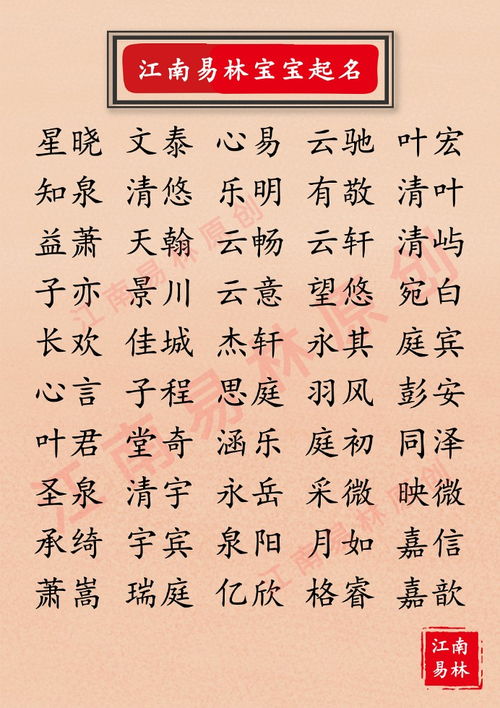 江南易林宝宝起名
星晓 文泰 心易 云驰 叶宏
知泉 清悠 乐明 有敬 清叶
益萧 天翰 云畅 云轩 清屿
子亦 景川 云意 望悠 宛白
长欢 佳城 杰轩 永其 庭宾
心言 子程 思庭 羽风 彭安
叶君 堂奇 涵乐 庭初 同泽
圣泉 清宇 永岳 采微 映微
承绮 宇宾 泉阳 月如 嘉信
萧嵩 瑞庭 亿欣 格睿 嘉歆
江南易林原创
江南易林原创
江南易林原创
江南
易林